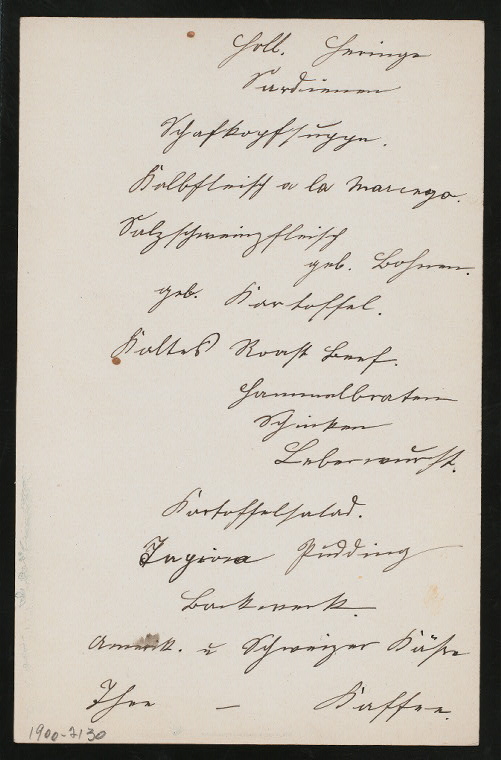 Holl. Heringe
Sardienen
Schafkopfsuppe.
Kalbfleisch a la Marengo.
Salzschweinzfleisch
geb. Bohnen.
geb. Kartoffel.
Kaltes Roast Beef.
Hammelbraten
Schinken
Leberwurst.
Kartoffelsalad.
Tapioca Pudding
Backwerk.
Amerik. u Schweizer Käse
Thee — Kaffee.
1900-7130